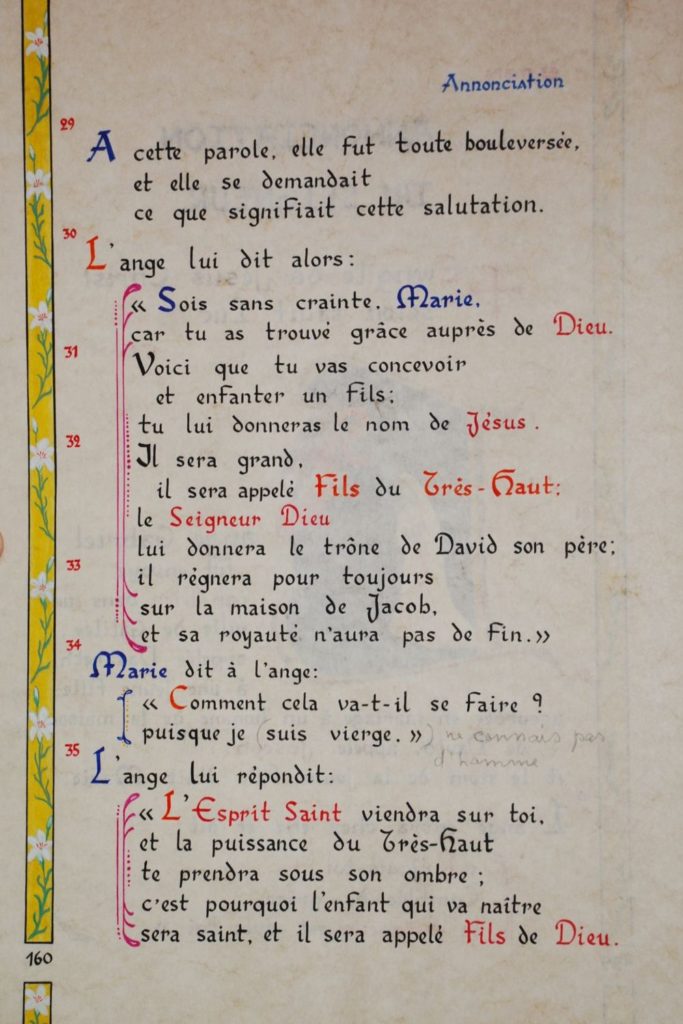 Annonciation
29
A cette parole, elle fut toute bouleversée,
et elle se demandait
ce que signifiait cette salutation.
30
L'ange lui dit alors:
« Sois sans crainte, Marie,
car tu as trouvé grâce auprès de Dieu.
31
Voici que tu vas concevoir
et enfanter un Fils;
tu lui donneras le nom de Jésus.
32
Il sera grand,
il sera appelé Fils du Très-Haut;
le Seigneur Dieu
lui donnera le trône de David son père;
33
il régnera pour toujours
sur la maison de Jacob,
et sa royauté n'aura pas de fin.»
34
Marie dit à l'ange:
« Comment cela va-t-il se faire ?
puisque je (suis vierge.») ne connais pas
d'homme
35
L'ange lui répondit:
« L'Esprit Saint viendra sur toi,
et la puissance du Très-Haut
te prendra sous son ombre ;
c'est pourquoi l'enfant qui va naître
sera saint, et il sera appelé Fils de Dieu.
160